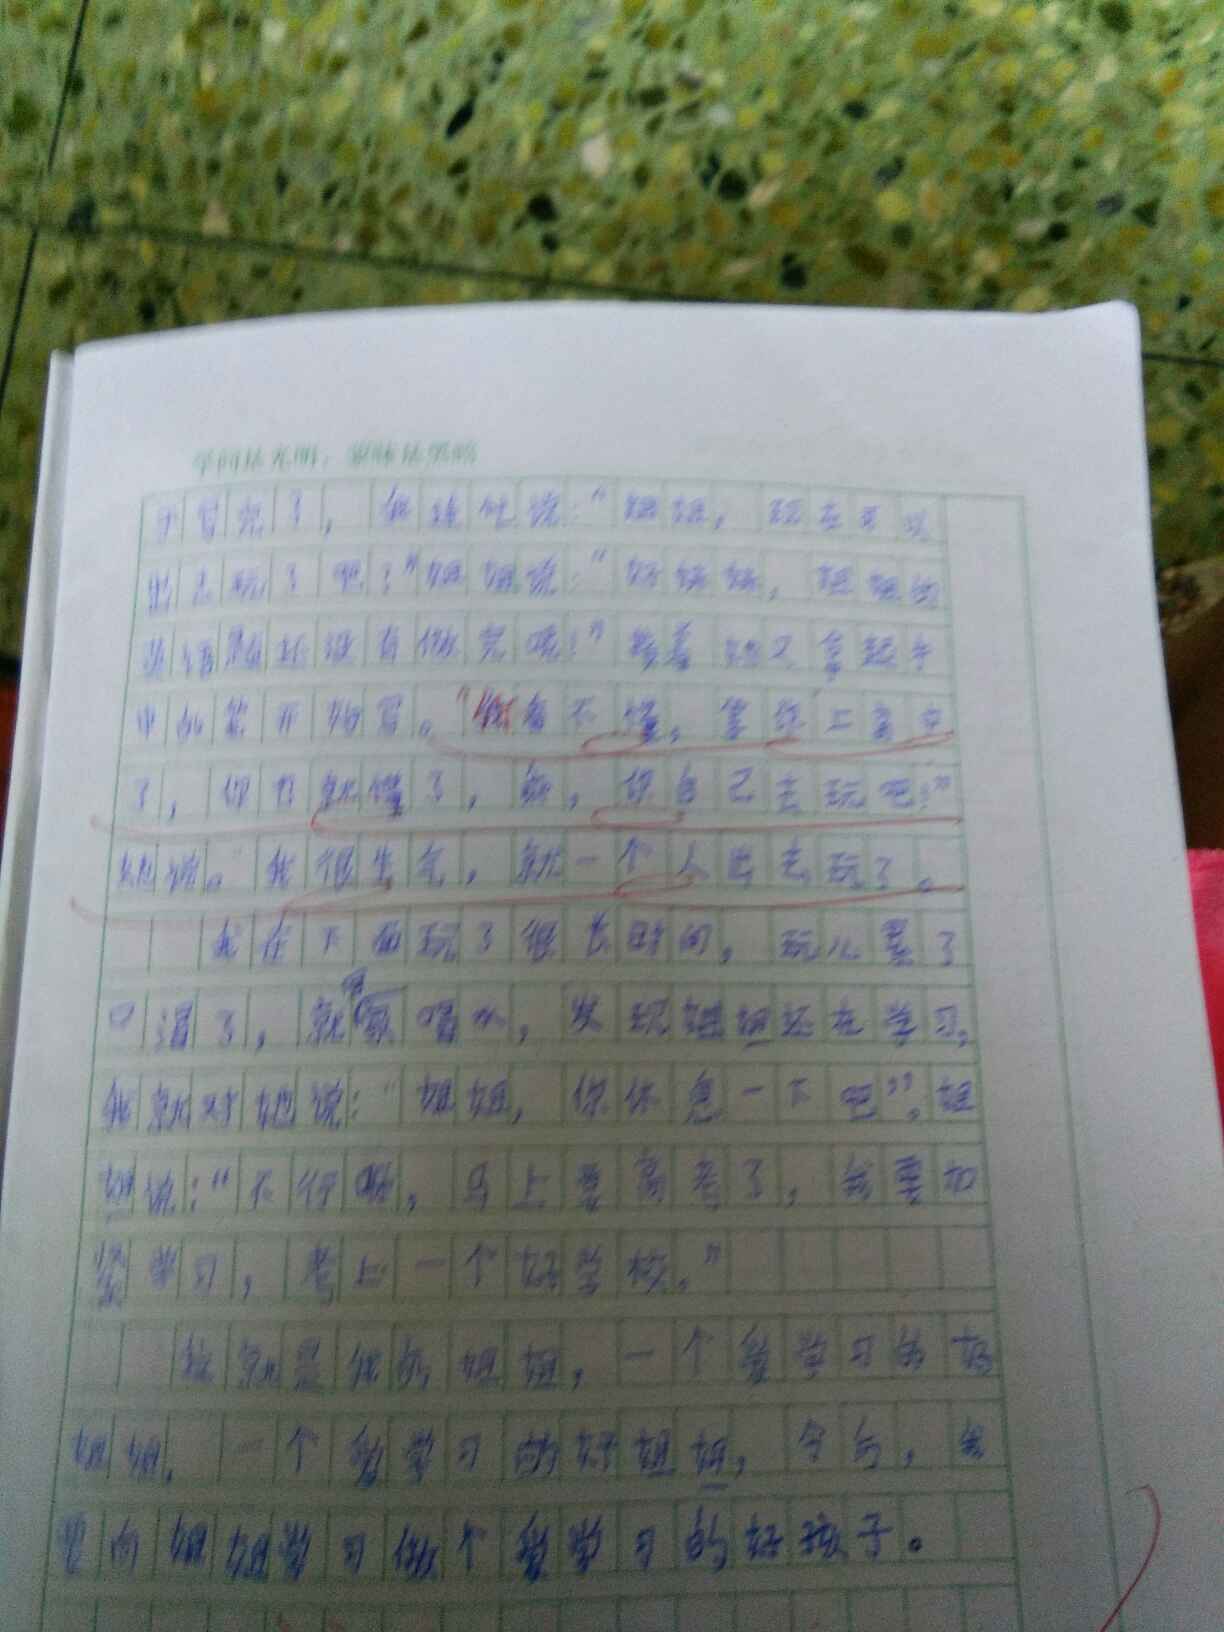 学问是光明，蒙昧是黑暗
于写完了，我对她说：“姐姐，现在可以
出去玩了吧？”姐姐说：“好妹妹，姐姐的
练习题还没有做完呢！”接着她又拿起手
中的笔开始写。“你看不懂，等你
了，你才就懂了，你自己去玩吧！”
她说。我很生气，就一个人出去玩了。
我在下面玩了很长时间，玩儿累了
口渴了，就回家喝水，发现姐姐还在学习，
我就对她说：“姐姐，你休息一下吧”。姐
姐说：“不行啊，马上要高考了，我要加
紧学习，考上一个好学校。”
这就是我的姐姐，一个爱学习的好
姐姐，一个爱学习的好姐姐，今后，我
要向姐姐学习做个爱学习的好孩子。